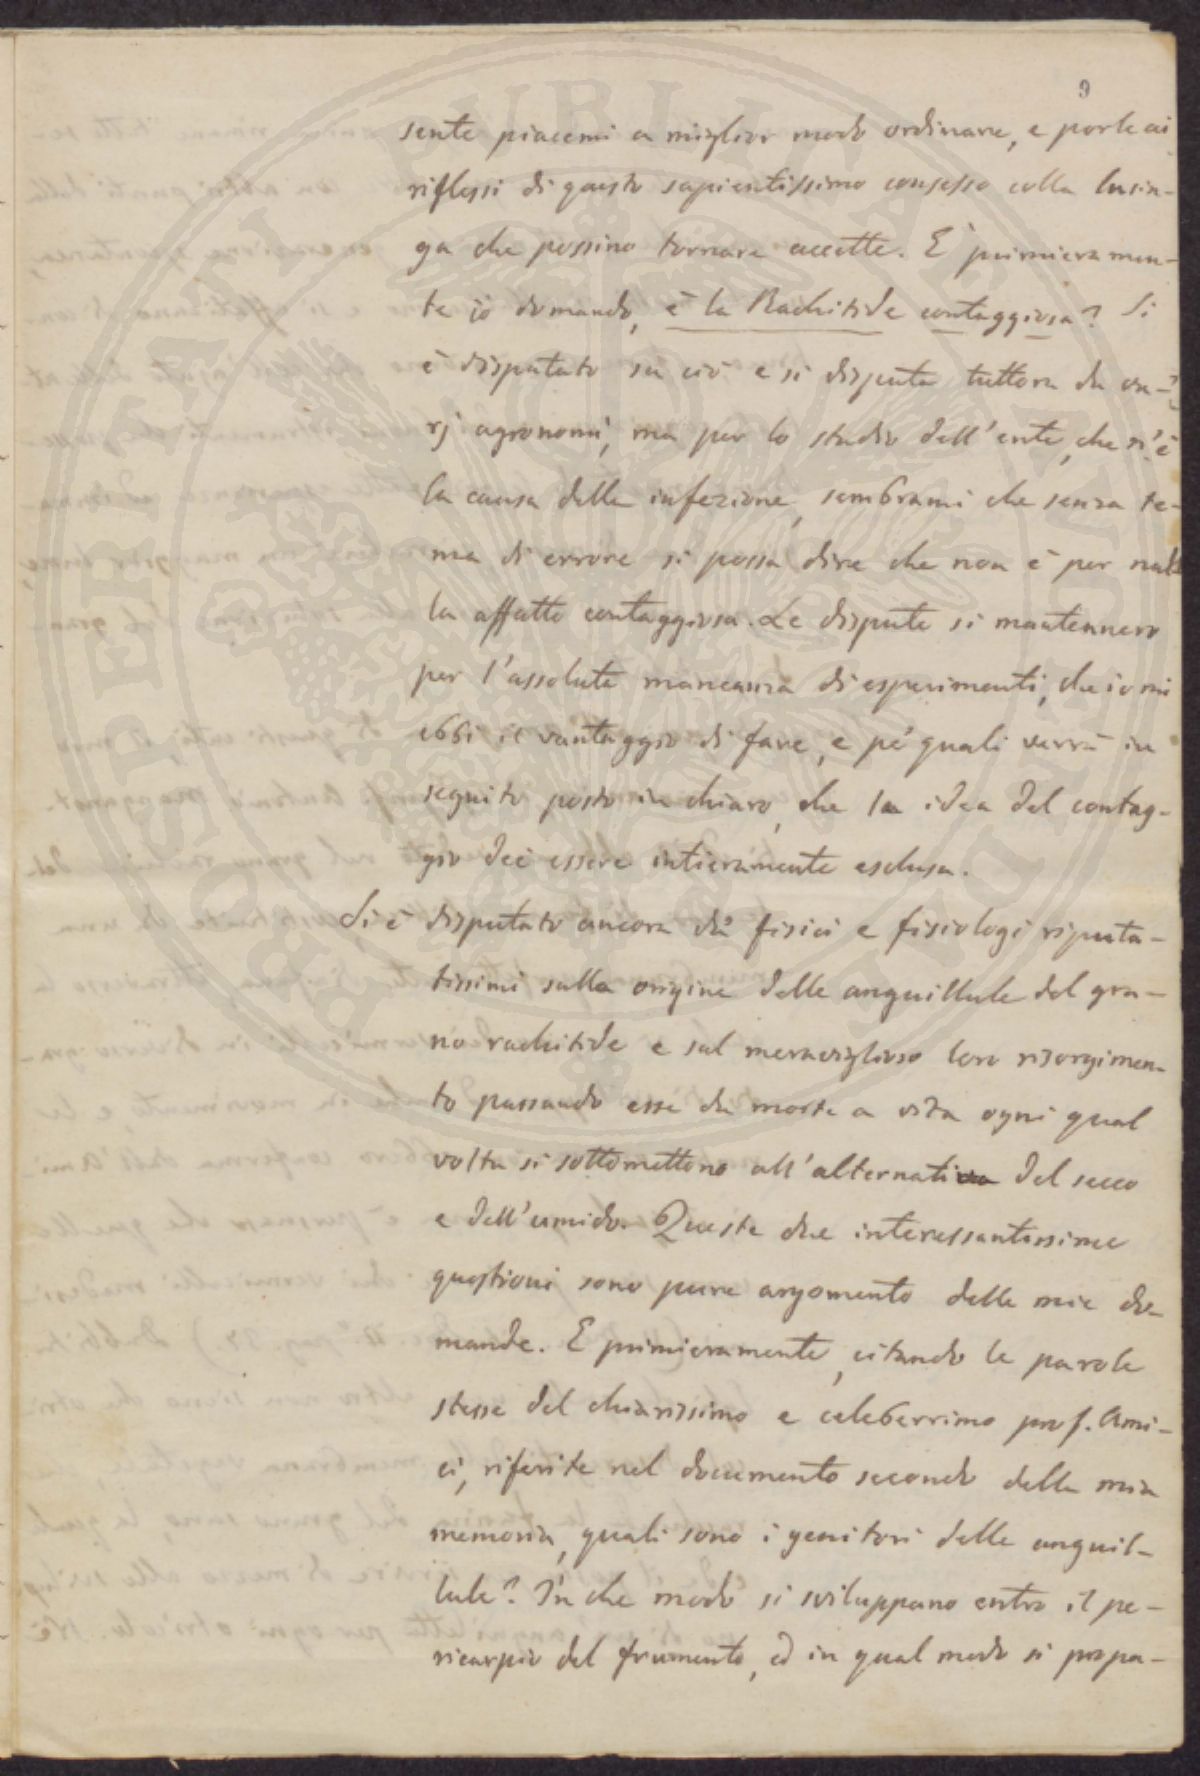 9
sente piacemi a miglior modo ordinare, e porle ai
riflessi di questo sapientissimo consesso colla lusin-
ga che possino tornare accette. E primieramen-
te io domando, è la Rachitide contaggiosa? Si
è disputato su ciò e si disputa tuttora da va-
rj agronomi, ma per lo studio dell'ente, che n'è
la causa della infezione, sembrami che senza te-
ma di errore si possa dire che non è per nul
la affatto contaggiosa. Le dispute si mantennero
per l'assoluta mancanza di esperimenti, che io mi
ebbi il vantaggio di fare, e pe' quali verrà in
seguito posto in chiaro, che la idea del contag-
gio dee essere intieramente esclusa.
Si è disputato ancora da' fisici e fisiologi riputa-
tissimi sulla origine delle anguillule del gra-
no rachitide e sul meraviglioso loro risorgimen-
to passando esse da morte a vita ogni qual
volta si sottomettono all'alternativa del secco
e dell'umido. Queste due interessantissime
questioni sono pure argomento delle mie do-
mande. E primieramente, citando le parole
stesse del chiarissimo e celeberrimo prof. Ami-
ci, riferite nel documento secondo della mia
memoria, quali sono i genitori delle anguil-
lule? In che modo si sviluppano entro il pe-
ricarpio del frumento, ed in qual modo si propa-